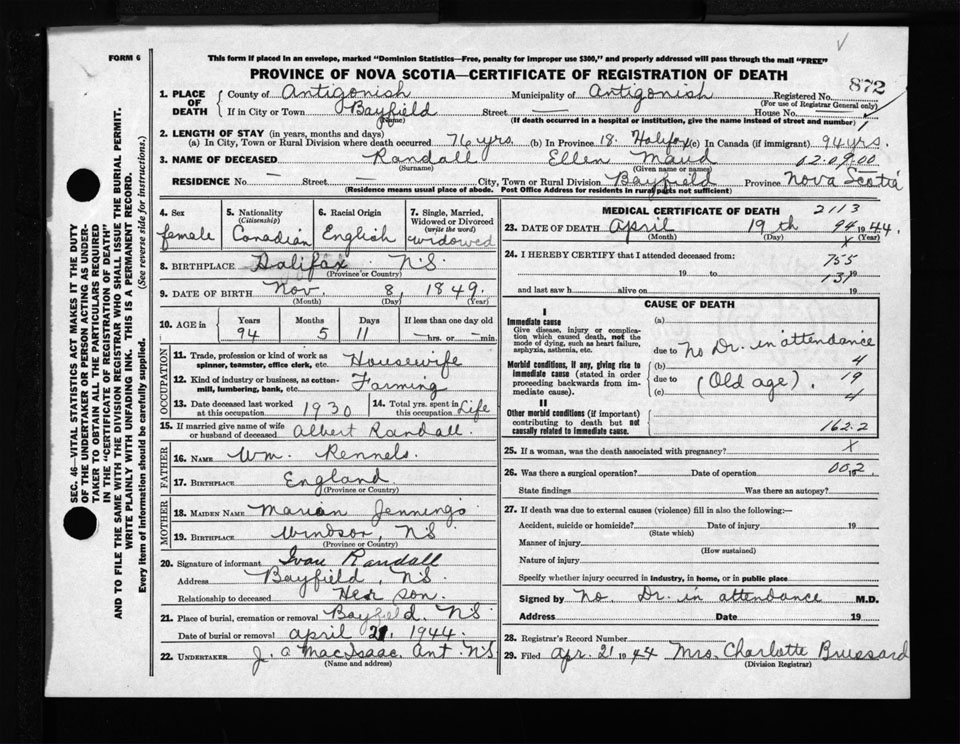 FORM 6
This form if placed in an envelope, marked "Dominion Statistics—Free, penalty for improper use $300," and properly addressed will pass through the mail "FREE"
PROVINCE OF NOVA SCOTIA—CERTIFICATE OF REGISTRATION OF DEATH
872
1. PLACE OF DEATH
County of Antigonish Municipality of Antigonish Registered No.
(For use of Registrar General only)
If in City or Town Bayfield Street — House No.
(Name) (If death occurred in a hospital or institution, give the name instead of street and number)
2. LENGTH OF STAY (in years, months and days)
(a) In City, Town or Rural Division where death occurred 76 yrs. (b) In Province 18. Halifax (c) In Canada (if immigrant) 94 yrs.
3. NAME OF DECEASED Randall Ellen Maud 02.09.00
(Surname) (Given name or names)
RESIDENCE No. — Street — City, Town or Rural Division Bayfield Province Nova Scotia
(Residence means usual place of abode. Post Office Address for residents in rural parts not sufficient)
4. Sex
female
5. Nationality
(Citizenship)
Canadian
6. Racial Origin
English
7. Single, Married, Widowed or Divorced
(write the word)
widowed
8. BIRTHPLACE Halifax NS
(Province or Country)
9. DATE OF BIRTH Nov. 8, 1849.
(Month) (Day) (Year)
10. AGE in
Years Months Days If less than one day old
94 5 11 — hrs. or — min.
OCCUPATION
11. Trade, profession or kind of work as spinner, teamster, office clerk, etc. Housewife
12. Kind of industry or business, as cotton-mill, lumbering, bank, etc. Farming
13. Date deceased last worked at this occupation 1930
14. Total yrs. spent in this occupation Life
15. If married give name of wife or husband of deceased Albert Randall.
FATHER
16. NAME Wm. Rennels.
17. BIRTHPLACE England
(Province or Country)
MOTHER
18. MAIDEN NAME Marian Jennings
19. BIRTHPLACE Windsor, NS
(Province or Country)
20. Signature of informant Ivan Randall
Address Bayfield, NS.
Relationship to deceased Her son.
21. Place of burial, cremation or removal Bayfield NS
Date of burial or removal April 21, 1944.
22. UNDERTAKER J. A MacIsaac. Ant. NS
(Name and address)
MEDICAL CERTIFICATE OF DEATH 2113
23. DATE OF DEATH April 19th 94 1944
(Month) (Day) X (Year)
24. I HEREBY CERTIFY that I attended deceased from: 755
19 to 131 19
and last saw h alive on 19
CAUSE OF DEATH
I
Immediate cause
Give disease, injury or complication which caused death, not the mode of dying, such as heart failure, asphyxia, asthenia, etc.
(a)
due to No Dr. in attendance
Morbid conditions, if any, giving rise to immediate cause (stated in order proceeding backwards from immediate cause).
(b) 4
due to (Old age). 19
(c) 4
II
Other morbid conditions (if important) contributing to death but not causally related to immediate cause.
162.2
25. If a woman, was the death associated with pregnancy? X
26. Was there a surgical operation? Date of operation 19
00.2
State findings Was there an autopsy?
27. If death was due to external causes (violence) fill in also the following:—
Accident, suicide or homicide? Date of injury 19
(State which)
Manner of injury
(How sustained)
Nature of injury
Specify whether injury occurred in industry, in home, or in public place
Signed by No. Dr. in attendance M.D.
Address Date 19
28. Registrar's Record Number
29. Filed Apr. 21 1944 Mrs. Charlotte
(Division Registrar)
SEC. 46—VITAL STATISTICS ACT MAKES IT THE DUTY
OF THE UNDERTAKER OR PERSON ACTING AS UNDER-
TAKER TO OBTAIN ALL THE PARTICULARS REQUIRED
IN THE "CERTIFICATE OF REGISTRATION OF DEATH"
AND TO FILE THE SAME WITH THE DIVISION REGISTRAR WHO SHALL ISSUE THE BURIAL PERMIT.
WRITE PLAINLY WITH UNFADING INK. THIS IS A PERMANENT RECORD.
Every item of information should be carefully supplied. (See reverse side for instructions.)